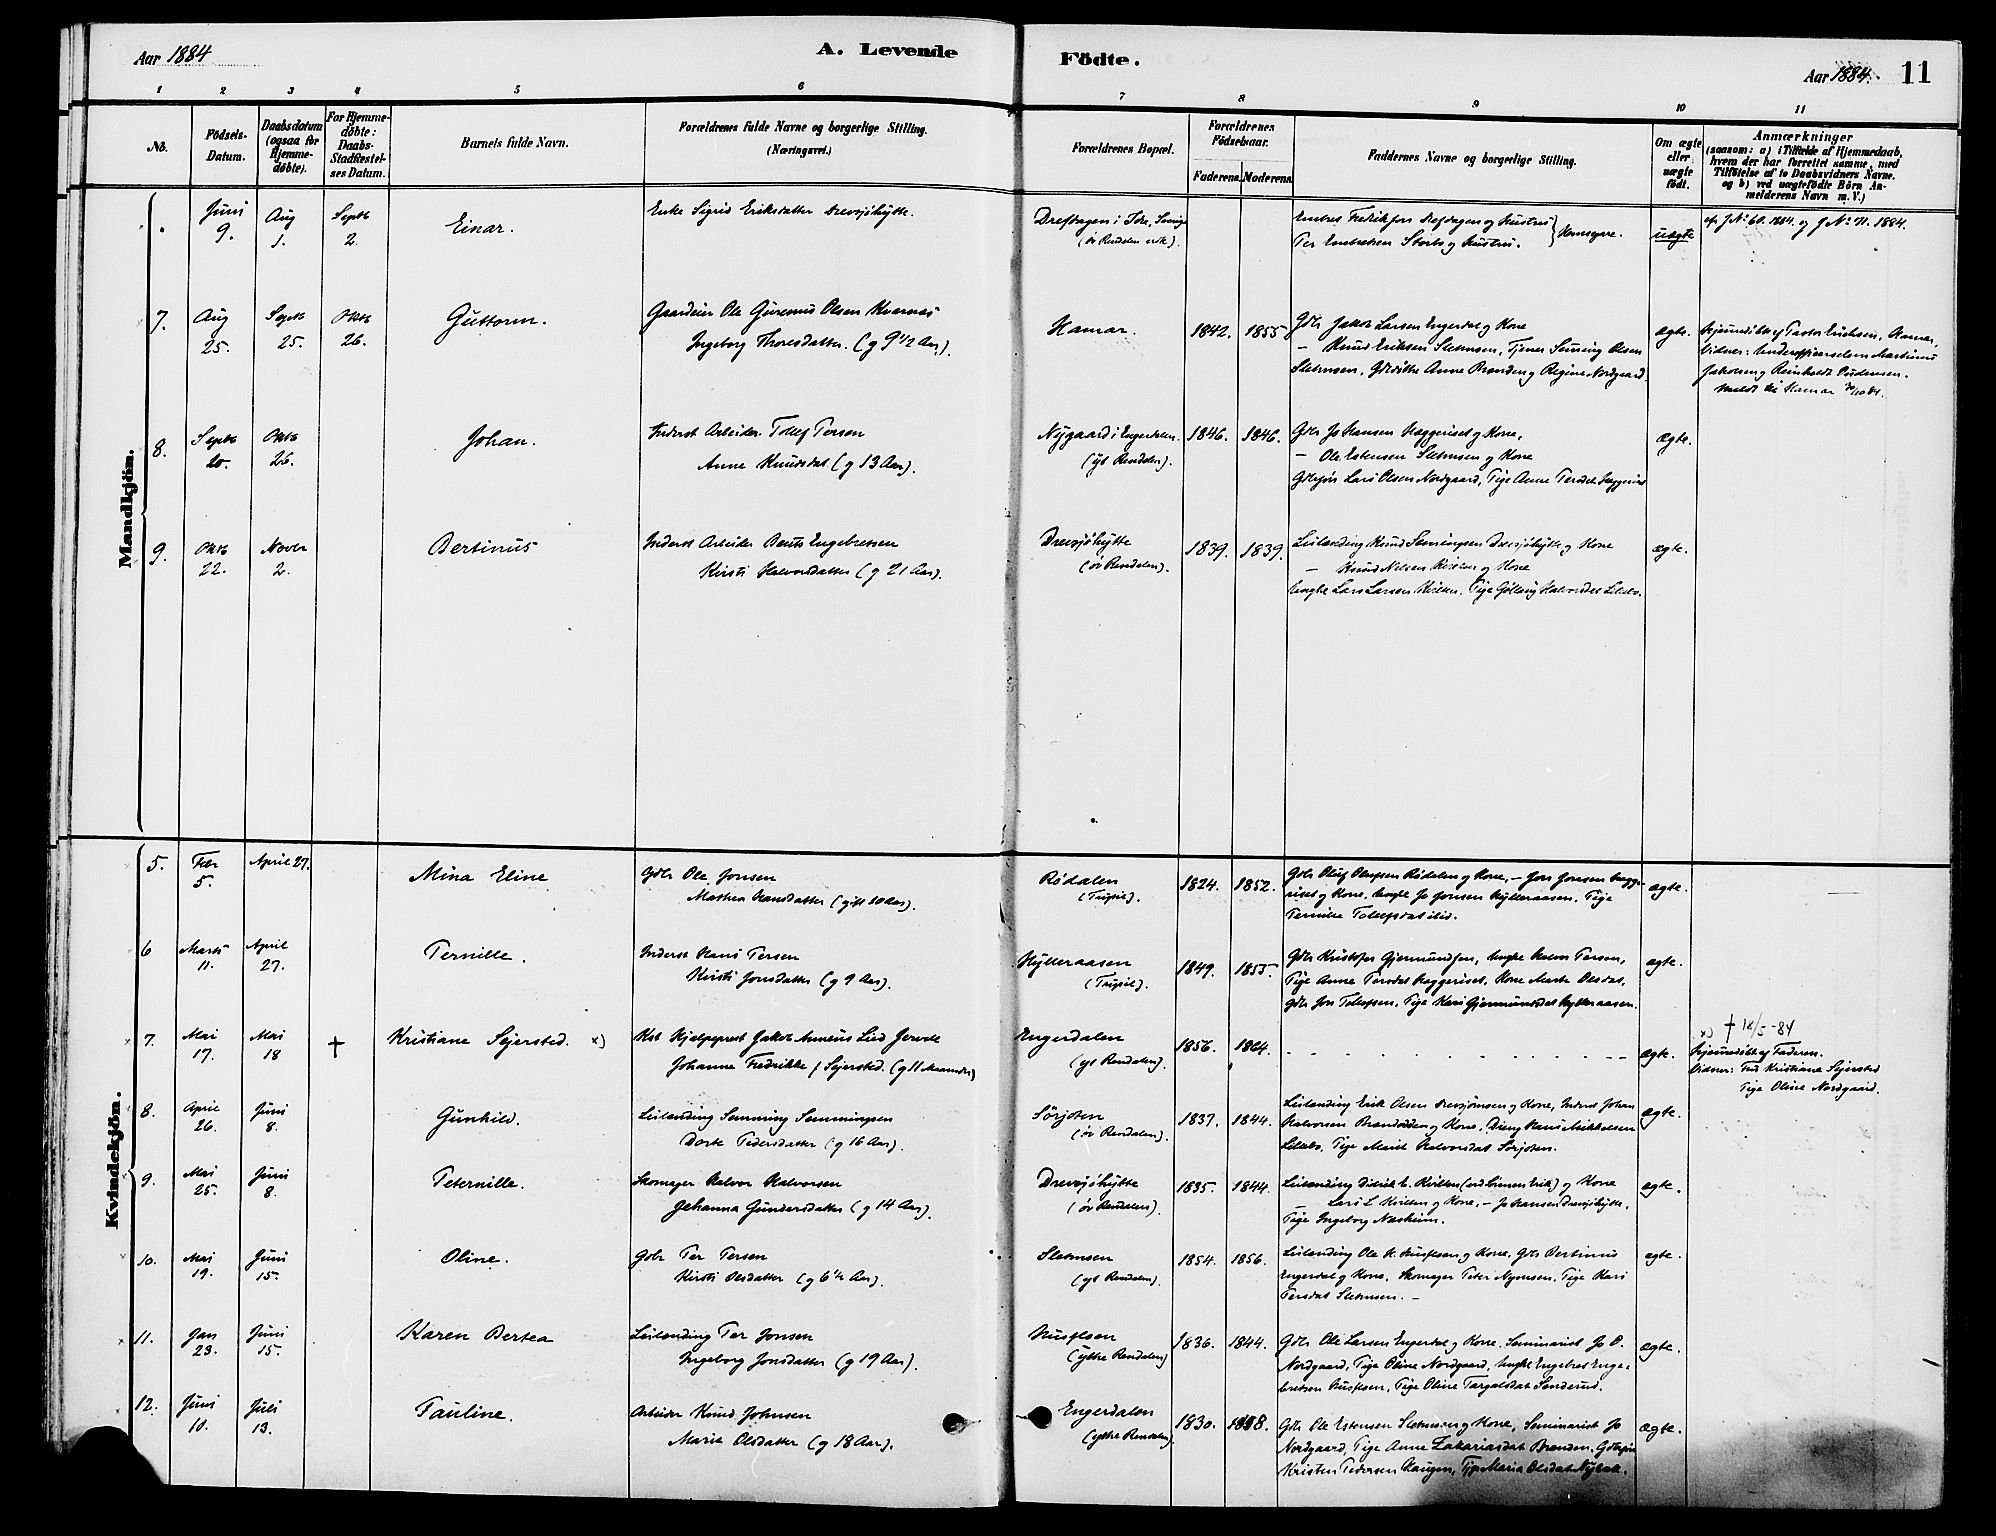 Aar 1884
A. Levende
Födte.
Aar 1884. 11
1 2 3 4 5 6 7 8 9 10 11
No.
Födsels-
Datum.
Daabsdatum
(ogsaa for
Hjemme-
døbte).
For Hjemme-
døbte:
Daabs-
Stadfæstel-
ses Datum.
Barnets fulde Navn.
Forældrenes fulde Navne og borgerlige Stilling.
(Næringsvei.)
Forældrenes Bopæl.
Forældrenes
Födselsaar.
Faderens. Moderens.
Faddernes Navne og borgerlige Stilling.
Om ægte
eller
uægte
født.
Anmærkninger
(saasom: a) i Tilfælde af Hjemmedaab,
hvem der har forrettet samme, med
Tilföielse af to Daabsvidners Navne.
og b) ved uægtefödte Börn An-
melderens Navn m. V.)
Mandkjön.
Juni
9.
Aug
1.
Septb
2.
Einar.
Enke Sigrid Eriksdatter Drevsjøhytte.
Drefdagen i Idre,
(øv Rendalen
Per Embretsen
uægte
J No. 60. 1884. og J No. 71. 1884.
7.
Aug
25.
Septb
25.
Oktb
26.
Guttorm.
Gaardeier Ole Gurenius Olsen Kvernes
Ingeborg Thoresdatter. (g 9 1/2 Aar).
Hamar.
1842. 1855
Gdb. Jakob Larsen Engerdal og Kone
— Knud Eriksen Sletmoen, Tjener Semming Olsen
Sletmoen, Anne Brænden og Regine Nordgaard.
ægte.
Hjemmedøbt af Pastor Erichsen, Hamar,
Vidner: Martinus
Jakobsen og Reinholdt
meldt til Hamar 30/10 84.
8.
Septb
20.
Oktb
26.
Johan.
Inderst Arbeider Tollef Persen
Anne Knudsdat (g 13 Aar).
Nygaard i Engerdalen.
(yt Rendalen).
1846. 1846.
Gdb. Jo Hansen Heggeriset og Kone,
— Ole Estensen Sletmoen og Kone
Lars Olsen Nordgaard, Pige Anne Persdat Heggeriset
ægte.
9.
Oktb
22.
Novbr
2.
Bertinus
Inderst Arbeider Bernt Engebretsen
Kirsti Halvorsdatter (g 21 Aar).
Drevsjøhytte
(øv Rendalen).
1839. 1839.
Leilænding Knud Semmingsen Drevsjøhytte og Kone
— Knud Nilsen Kvilten og Kone
Ungk Lars Larsen Kvilten. Pige Gølloug Halvorsdat Lillebo.
ægte.
Kvindekjön.
5.
Febr
5.
April 27.
Mina Eline
Gdbr Ole Jonsen
Mathea Hansdatter (gift 10 Aar).
Rødalen
(Trysil).
1824. 1852.
Gdb Oluf Olufsen Rødalen og Kone, – Jon Jonsen Hegge-
riset og Kone, Ungk Jo Jonsen Hylleraasen, Pige
Pernille Tollefsdat ibid.
ægte.
6
Marts
11.
April
27.
Pernille.
Inderst Hans Persen
Kirsti Jonsdatter (g 9 Aar).
Hylleraasen
(Trysil).
1849. 1855.
Gdb Kristofer Gjermundsen, Ungk Halvor Persen,
Pige Anne Persdat Heggeriset, Kone Marte Olsdat,
Gdb Jon Tollefsen, Pige Kari Gjermundsdat Hylleraasen.
ægte.
7.
Mai
17.
Mai
18
†
Kristiane Sejersted. x)
Kst Hjelpeprest Jakob Anneus Lied Jervell
Johanne Fredrikke f Sejersted. (g 11 Maaneder)
Engerdalen
(yt Rendalen).
1856. 1864.
ægte.
x) † 18/5-84
Hjemmedøbt af Faderen.
Vidner: Frk Kristiane Sejersted
Pige Oline Nordgaard.
8.
April
26.
Juni
8.
Gunhild.
Leilænding Semming Semmingsen
Dorte Pedersdatter (g 16 Aar).
Sørjoten
(øv Rendalen).
1837. 1844.
Leilænding Erik Olsen Drevsjømoen og Kone, Inderst Johan
Halvorsen og Kone, Dreng Hans Mikkelsen
Lillebo, Pige Marit Halvorsdat Sørjoten.
ægte.
9.
Mai
25.
Juni
8.
Peternille.
Skomager Halvor Halvorsen
Johanna Gundersdatter (g 14 Aar).
Drevsjøhytte
(øv Rendalen).
1835. 1844.
Leilænding Didrik L. Kvilten og Kone
— Lars L Kvilten og Kone, – Jo Hansen Drevsjøhytte,
Pige Ingeborg Næsheim.
ægte.
10.
Mai
19.
Juni
15.
Oline.
Gdbr Per Persen
Kirsti Olsdatter (g 6 1/2 Aar).
Sletmoen
(yt Rendalen).
1854. 1856.
Leilænding Ole K. Husfloen og Kone, Gdb Bertinus
Engerdal og Kone, Skomager Peter Nymoen, Pige Kari
Persdat Sletmoen. –
ægte.
11.
Jan
23.
Juni
15.
Karen Bertea
Leilænding Per Jonsen
Ingeborg Jonsdatter (g 19 Aar).
Husfloen
(ythre Rendalen)
1836. 1844.
Gdb Ole Larsen Engerdal og Kone, Seminarist Jo O.
Nordgaard, Pige Oline Nordgaard, Ungk Engebret Enge-
bretsen Husfloen, Pige Oline Sønderud.
ægte.
12.
Juni
10.
Juli
13.
Pauline.
Arbeider Knud Johnsen
Marie Olsdatter (g 18 Aar).
Engerdalen
(ythre Rendalen)
1830.
Gdb Ole Estensen Sletmoen og Kone, Seminarist Jo
Nordgaard, Pige Anne Zakariasdat Brænden,
Kristen Pedersen Haugen, Pige Maria Olsdat Nybak.
ægte.